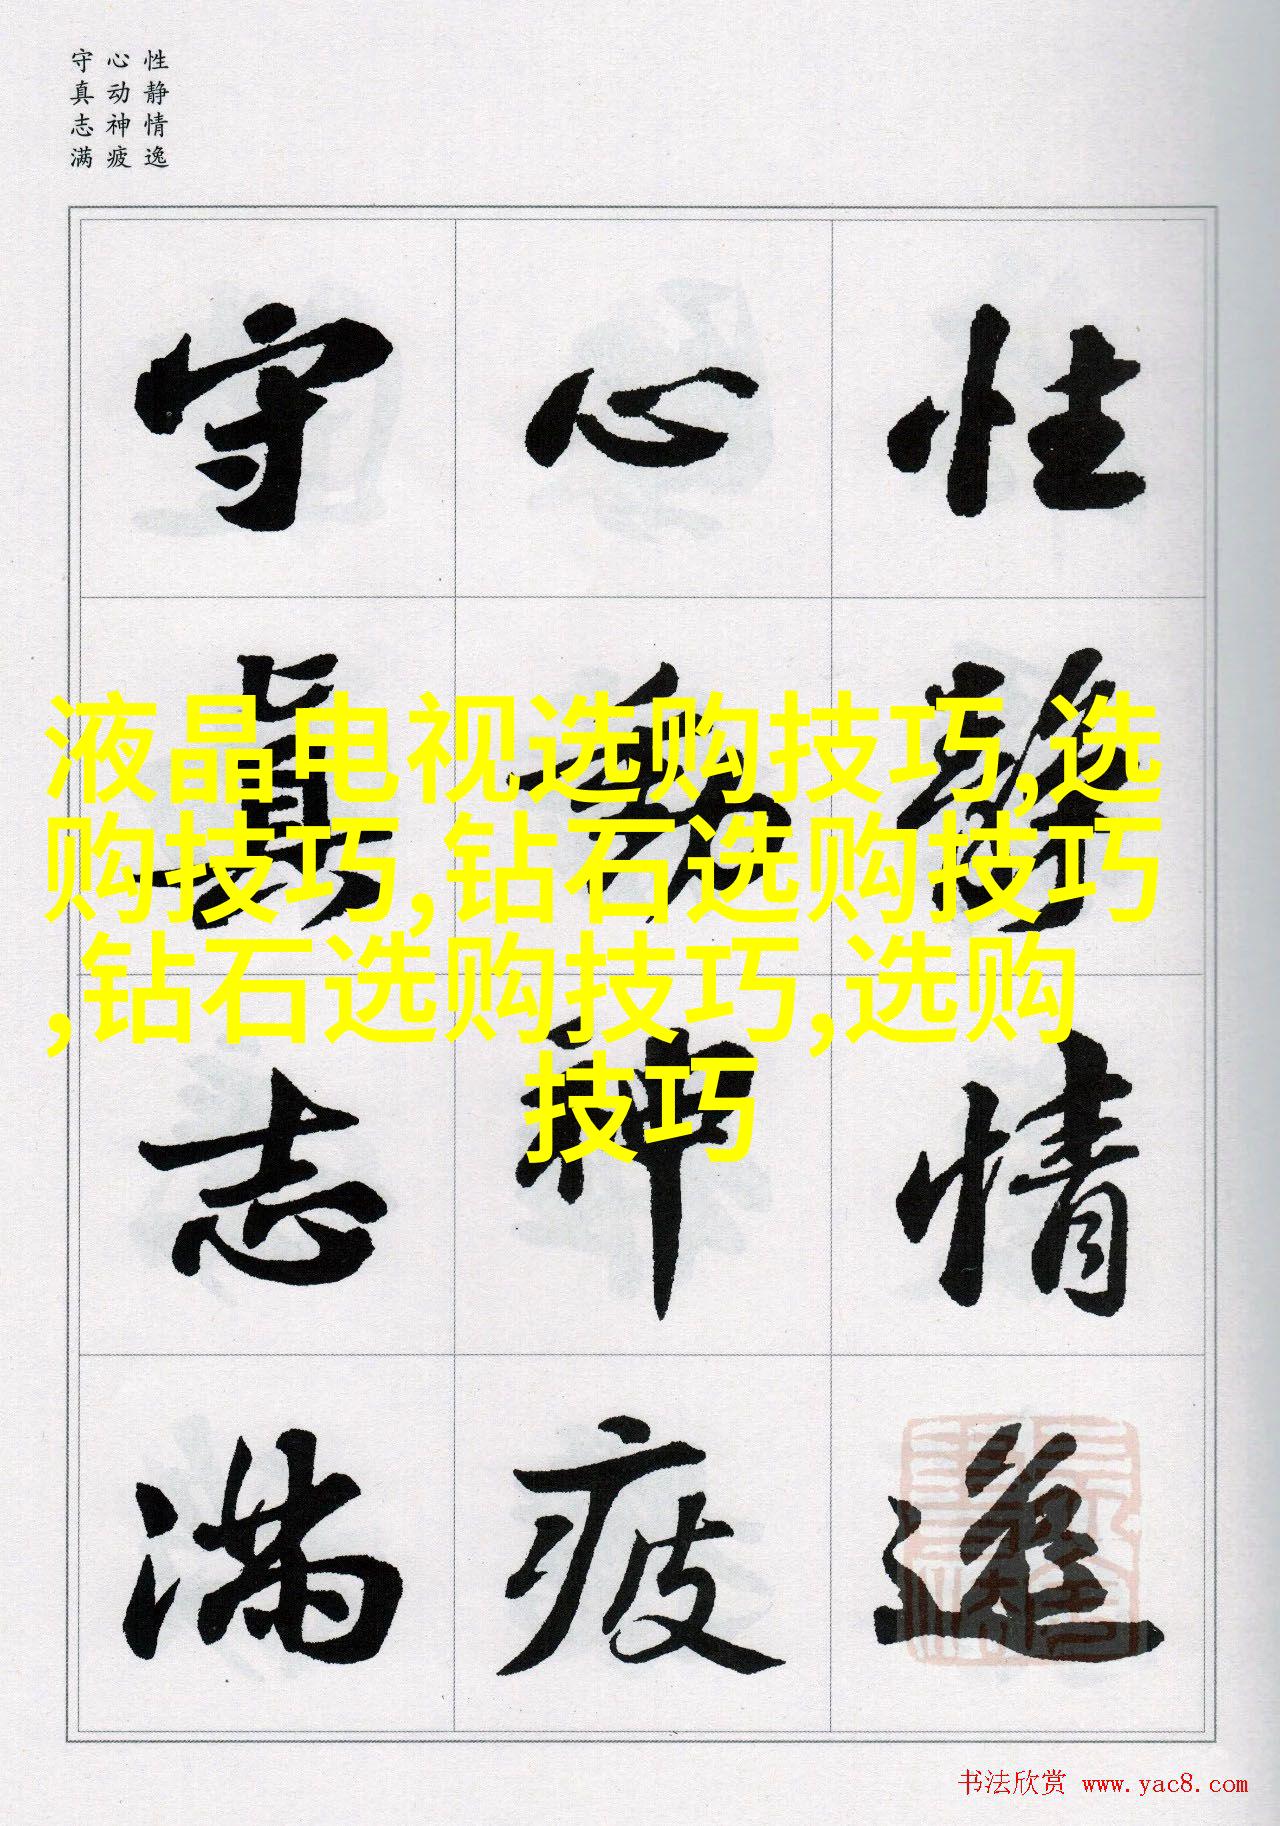 性静情逸
心动神疲
守真志满
性靜情逸
心動神疲
守真志滿
液晶电视选购技巧,选
购技巧,钻石选购技巧
,钻石选购技巧,选购
技巧
书法欣赏 www.yac8.com